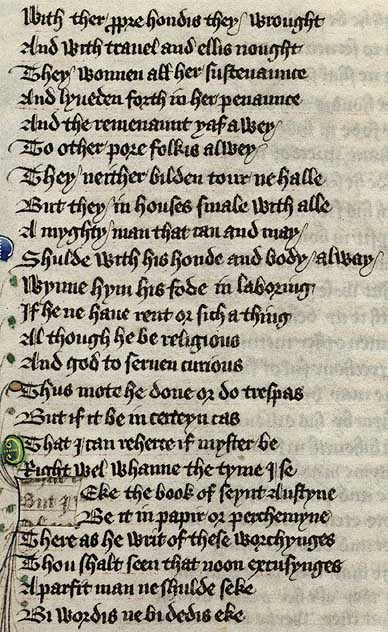 With ther ꝓpre hondis they wrought
And with trauel and ellis nought
They wonnen all her sustenaunce
And lyueden forth in her penaunce
And the remenaunt yaf awey
To other pore folkis alwey
They neither bilden tour ne halle
But they in houses smale with alle
A myghty man that can and may
Shulde with his honde and body alway
Wynne hym his fode in laboring
If he ne haue rent or sich a thing
Al though he be religious
And god to seruen curious
Thus mote he done or do trespas
But if it be in certeyn cas
That I can reherce if myster be
Right wel whanne the tyme I se
Eke the book of seynt Austyne
But I
Be it in papir or perchemyne
There as he writ of these worchynges
Thou shalt seen that noon excusynges
A parfit man ne shulde seke
Bi wordis ne bi dedis eke